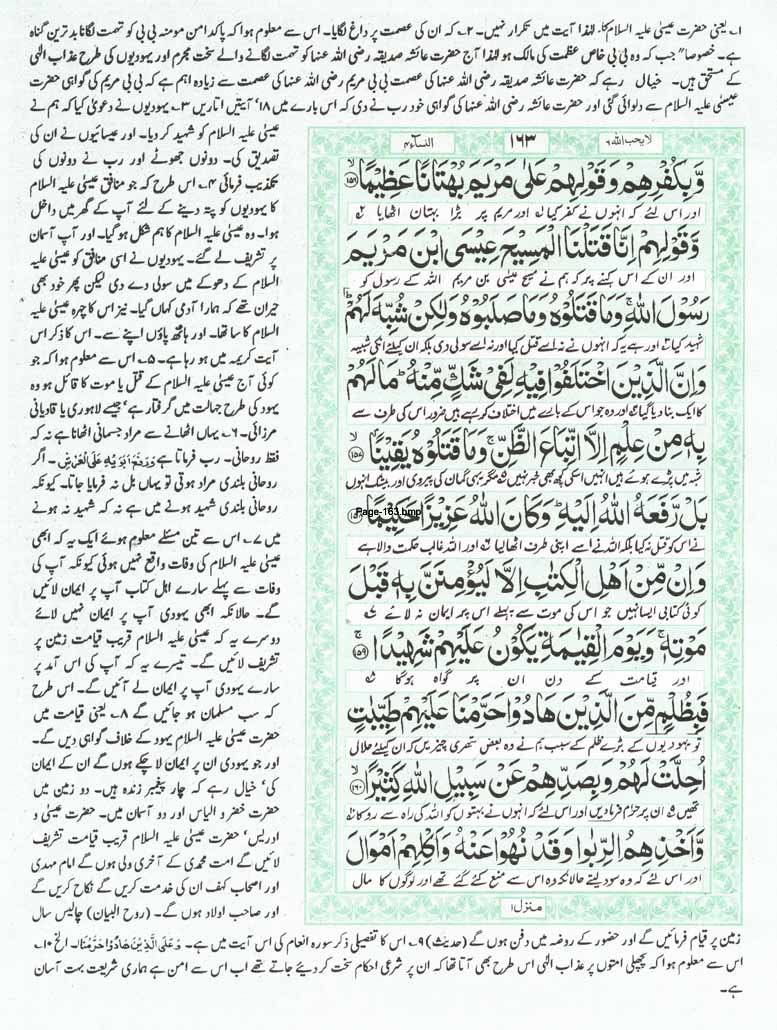 ۱۔ یعنی حضرت عیسیٰ علیہ السلام کا۔ لہٰذا آیت میں تکرار نہیں۔ ۲۔ کہ ان کی عصمت پر داغ لگایا۔ اس سے معلوم ہوا کہ پاکدامن مومنہ بی بی کو تہمت لگانا بدترین گناہ
ہے۔ خصوصاً جب کہ وہ بی بی خاص عظمت کی مالک ہو لہٰذا آج حضرت عائشہ صدیقہ رضی اللہ عنہا کو تہمت لگانے والے سخت مجرم اور یہودیوں کی طرح عذاب الٰہی
کے مستحق ہیں۔ خیال رہے کہ حضرت عائشہ صدیقہ رضی اللہ عنہا کی عصمت بی بی مریم رضی اللہ عنہا کی عصمت سے زیادہ اہم ہے کہ بی بی مریم کی گواہی حضرت
عیسیٰ علیہ السلام سے دلوائی گئی اور حضرت عائشہ رضی اللہ عنہا کی گواہی خود رب نے دی کہ اس بارے میں ۱۸ آیتیں اتاریں ۳۔ یہودیوں نے دعویٰ کیا کہ ہم نے
عیسیٰ علیہ السلام کو شہید کر دیا۔ اور عیسائیوں نے ان کی
تصدیق کی۔ دونوں جھوٹے اور رب نے دونوں کی
تکذیب فرمائی ۴۔ اس طرح کہ جو منافق عیسیٰ علیہ السلام
کا یہودیوں کو پتہ دینے کے لئے آپ کے گھر میں داخل
ہوا۔ وہ عیسیٰ علیہ السلام کا ہم شکل ہو گیا۔ اور آپ آسمان
پر تشریف لے گئے۔ یہودیوں نے اسی منافق کو عیسیٰ علیہ
السلام کے دھوکے میں سولی دے دی لیکن پھر خود بھی
حیران تھے کہ ہمارا آدمی کہاں گیا۔ نیز اس کا چہرہ عیسیٰ علیہ
السلام کا سا تھا۔ اور ہاتھ پاؤں اپنے سے۔ اس کا ذکر اس
آیت کریمہ میں ہو رہا ہے۔ ۵۔ اس سے معلوم ہوا کہ جو
کوئی آج عیسیٰ علیہ السلام کے قتل یا موت کا قائل ہو وہ
یہود کی طرح جہالت میں گرفتار ہے‘ جیسے لاہوری یا قادیانی
مرزائی۔ ۶۔ یہاں اٹھانے سے مراد جسمانی اٹھانا ہے نہ کہ
فقط روحانی۔ رب فرماتا ہے وَرَفَعَ اَبَوَیْہِ عَلَی الْعَرْشِ۔ اگر
روحانی بلندی مراد ہوتی تو یہاں بل نہ فرمایا جاتا۔ کیونکہ
روحانی بلندی شہید ہونے میں ہے نہ کہ شہید نہ ہونے
میں ۷۔ اس سے تین مسئلے معلوم ہوئے ایک یہ کہ ابھی
عیسیٰ علیہ السلام کی وفات واقع نہیں ہوئی کیونکہ آپ کی
وفات سے پہلے سارے اہل کتاب آپ پر ایمان لائیں
گے۔ حالانکہ ابھی یہودی آپ پر ایمان نہیں لائے
دوسرے یہ کہ عیسیٰ علیہ السلام قریب قیامت زمین پر
تشریف لائیں گے۔ تیسرے یہ کہ آپ کی اس آمد پر
سارے یہودی آپ پر ایمان لے آئیں گے۔ اس طرح
کہ سب مسلمان ہو جائیں گے ۸۔ یعنی قیامت میں
حضرت عیسیٰ علیہ السلام یہود کے خلاف گواہی دیں گے۔
اور جو یہودی ان پر ایمان لا چکے ہوں گے ان کے ایمان
کی‘ خیال رہے کہ چار پیغمبر زندہ ہیں۔ دو زمین میں
حضرت خضر و الیاس اور دو آسمان میں۔ حضرت عیسیٰ و
ادریس‘ حضرت عیسیٰ علیہ السلام قریب قیامت تشریف
لائیں گے امت محمدی کے آخری ولی ہوں گے امام مہدی
اور اصحاب کہف ان کی خدمت کریں گے نکاح کریں گے
اور صاحب اولاد ہوں گے۔ (روح البیان) چالیس سال
لا یحب اللہ ۶
۱۶۳
النسآء ۴
وَّبِكُفْرِهِمْ وَقَوْلِهِمْ عَلٰی مَرْیَمَ بُهْتَانًا عَظِیْمًا ۱۵۶
اور اس لئے کہ انہوں نے کفر کیا اور مریم پر بڑا بہتان اٹھایا ۲
وَّقَوْلِهِمْ اِنَّا قَتَلْنَا الْمَسِیْحَ عِیْسَی ابْنَ مَرْیَمَ
اور ان کے اس کہنے پر کہ ہم نے مسیح عیسیٰ بن مریم اللہ کے رسول کو
رَسُوْلَ اللّٰهِ ۚ وَمَا قَتَلُوْهُ وَمَا صَلَبُوْهُ وَلٰكِنْ شُبِّهَ لَهُمْ ؕ
شہید کیا ۳ اور ہے یہ کہ انہوں نے نہ اسے قتل کیا اور نہ اسے سولی دی بلکہ ان کیلئے انکی شبیہ
وَاِنَّ الَّذِیْنَ اخْتَلَفُوْا فِیْهِ لَفِیْ شَكٍّ مِّنْهُ ؕ مَا لَهُمْ
کا ایک بنا دیا گیا ۴ اور وہ جو اس کے بارے میں اختلاف کر رہے ہیں ضرور اس کی طرف سے
بِهٖ مِنْ عِلْمٍ اِلَّا اتِّبَاعَ الظَّنِّ ۚ وَمَا قَتَلُوْهُ یَقِیْنًۢا ۱۵۷
شبہ میں پڑے ہوئے ہیں انہیں اسکی کچھ بھی خبر نہیں ۵ مگر یہی گمان کی پیروی اور بیشک انہوں
بَلْ رَّفَعَهُ اللّٰهُ اِلَیْهِ ؕ وَكَانَ اللّٰهُ عَزِیْزًا حَكِیْمًا
Page-163.bmp
نے اس کو قتل نہ کیا بلکہ اللہ نے اسے اپنی طرف اٹھا لیا ۶ اور اللہ غالب حکمت والا ہے
وَاِنْ مِّنْ اَهْلِ الْكِتٰبِ اِلَّا لَیُؤْمِنَنَّ بِهٖ قَبْلَ
کوئی کتابی ایسا نہیں جو اس کی موت سے پہلے اس پر ایمان نہ لائے ۷
مَوْتِهٖ ۚ وَیَوْمَ الْقِیٰمَةِ یَكُوْنُ عَلَیْهِمْ شَهِیْدًا ۱۵۹
اور قیامت کے دن ان پر گواہ ہوگا ۸
فَبِظُلْمٍ مِّنَ الَّذِیْنَ هَادُوْا حَرَّمْنَا عَلَیْهِمْ طَیِّبٰتٍ
تو یہودیوں کے بڑے ظلم کے سبب ہم نے وہ بعض ستھری چیزیں کہ ان کیلئے حلال
اُحِلَّتْ لَهُمْ وَبِصَدِّهِمْ عَنْ سَبِیْلِ اللّٰهِ كَثِیْرًا ۱۶۰
تھیں ۹ ان پر حرام فرما دیں اور اس لئے کہ انہوں نے بہتوں کو اللہ کی راہ سے روکا
وَّاَخْذِهِمُ الرِّبٰوا وَقَدْ نُهُوْا عَنْهُ وَاَكْلِهِمْ اَمْوَالَ
اور اس لئے کہ وہ سود لیتے حالانکہ وہ اس سے منع کئے گئے تھے اور لوگوں کا مال
منزل۱
زمین پر قیام فرمائیں گے اور حضور کے روضہ میں دفن ہوں گے (حدیث) ۹۔ اس کا تفصیلی ذکر سورہ انعام کی اس آیت میں ہے۔ وَعَلَی الَّذِیْنَ هَادُوْا حَرَّمْنَا۔ الخ ۱۰۔
اس سے معلوم ہوا کہ پچھلی امتوں پر عذاب الٰہی اس طرح بھی آتا تھا کہ ان پر شرعی احکام سخت کر دیئے جاتے تھے اب اس سے امن ہے ہماری شریعت بہت آسان
ہے۔